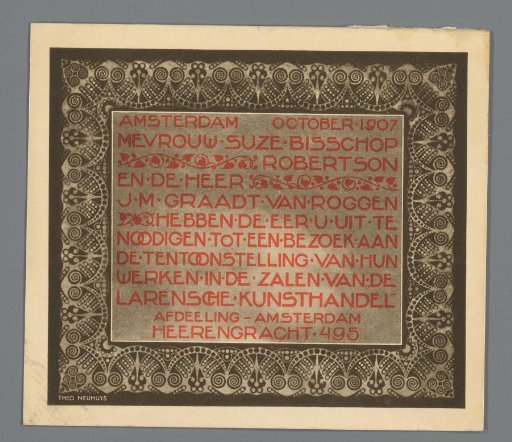 AMSTERDAM OCTOBER·1907
MEVROUW·SUZE·BISSCHOP
ROBERTSON
EN·DE·HEER
J·M·GRAADT·VAN·ROGGEN
HEBBEN·DE·EER·U·UIT·TE
NOODIGEN·TOT·EEN·BEZOEK·AAN
DE·TENTOONSTELLING·VAN·HUN
WERKEN·IN·DE·ZALEN·VAN·DE
LARENSCHE·KUNSTHANDEL"
AFDEELING–AMSTERDAM
HEERENGRACHT·495
THEO NEUHUYS